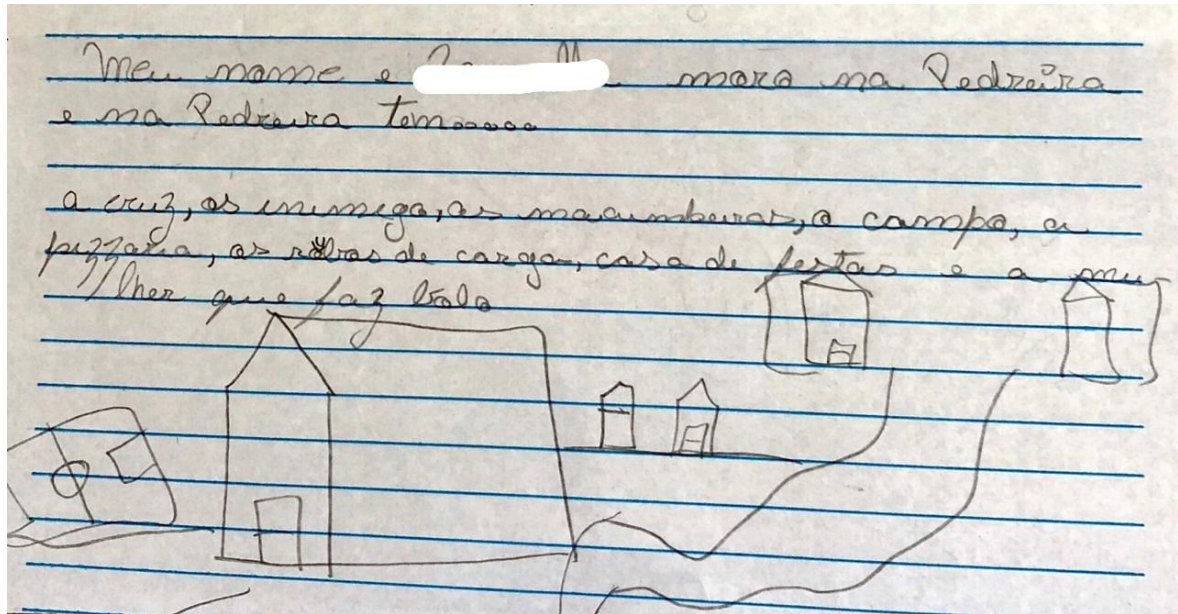 Meu nome e mora na Pedreira
e na Pedreira tem.....
a cruz, os inimigo, as macumbeiras, o campo, a
pizzaria, os de carga, casa de festas e a mu
lher que faz bolo